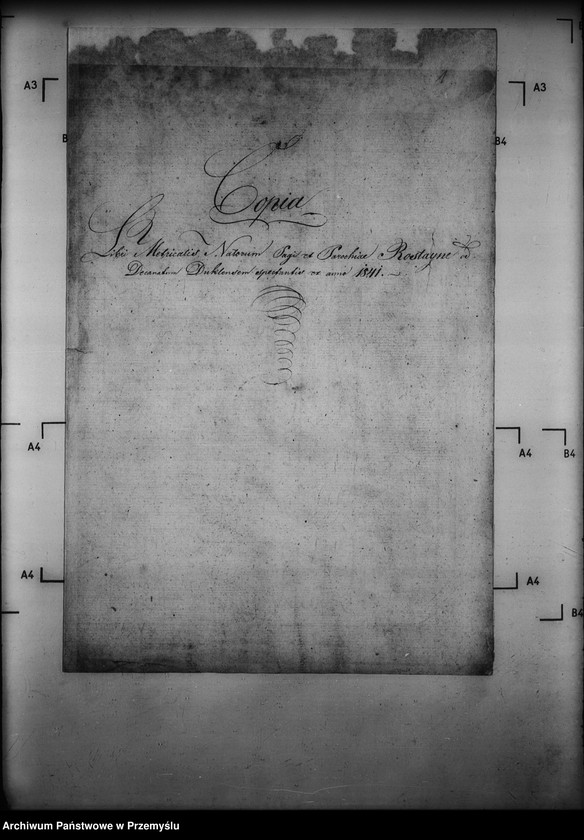 Copia
Libri Metricalis Natorum Pagi et Parochiae Rostayne ad
Decanatum Duklensem spectantis ex anno 1841.
A3
A3
B4
A4
A4
B4
A4
A4
B4
Archiwum Państwowe w Przemyślu